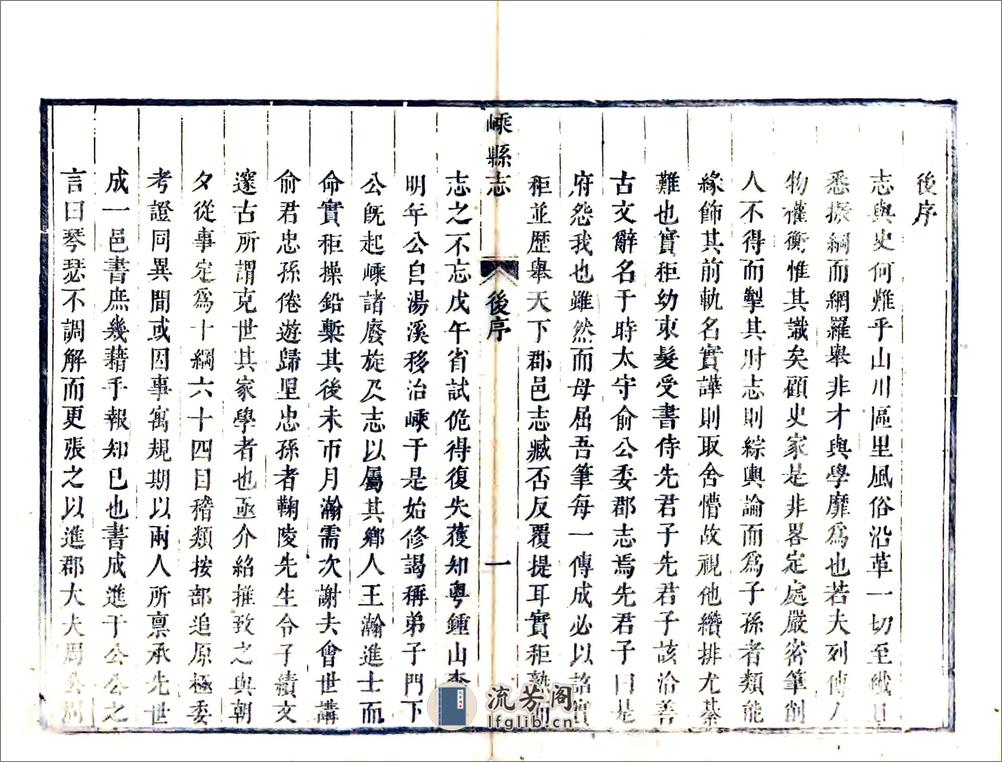 後序
志與史何難乎山川區里風俗沿革一切至纖且
悉振綱而網羅舉非才與學靡爲也若夫列傳人
物權衡惟其識矣顧史家是非畧定處嚴密筆削
人不得而掣其肘志則綜輿論而爲子孫者類能
緣飾其前軌名實譁則取舍懵故視他纘排尤綦
難也實秬幼束髮受書侍先君子先君子該洽善
古文辭名于時太守俞公委郡志焉先君子曰是
府怨我也雖然而毋屈吾筆每一傳成必以詔實
秬並歷舉天下郡邑志臧否反覆提耳實秬熟
嵊縣志
後序
一
志之不忘戊午省試佹得復失獲知粵鍾山李
明年公自湯溪移治嵊于是始修謁稱弟子門下
公旣起嵊諸廢旋及志以屬其鄉人王瀚進士而
命實秬操鉛槧其後未帀月瀚需次謝去會世講
俞君忠孫倦遊歸里忠孫者鞠陵先生令子績文
邃古所謂克世其家學者也亟介紹摧致之與朝
夕從事定爲十綱六十四目稽類按部追原極委
考證同異間或因事寓規期以兩人所禀承先世
成一邑書庶幾藉手報知已也書成進于公公之
言曰琴瑟不調解而更張之以進郡大夫周公周
流芳阁
lfglib.cn